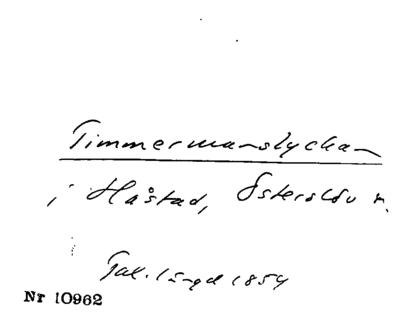 Timmermanslyckan
i Håstad, Österslöv s.
Tax.längd 1854
Nr 10962